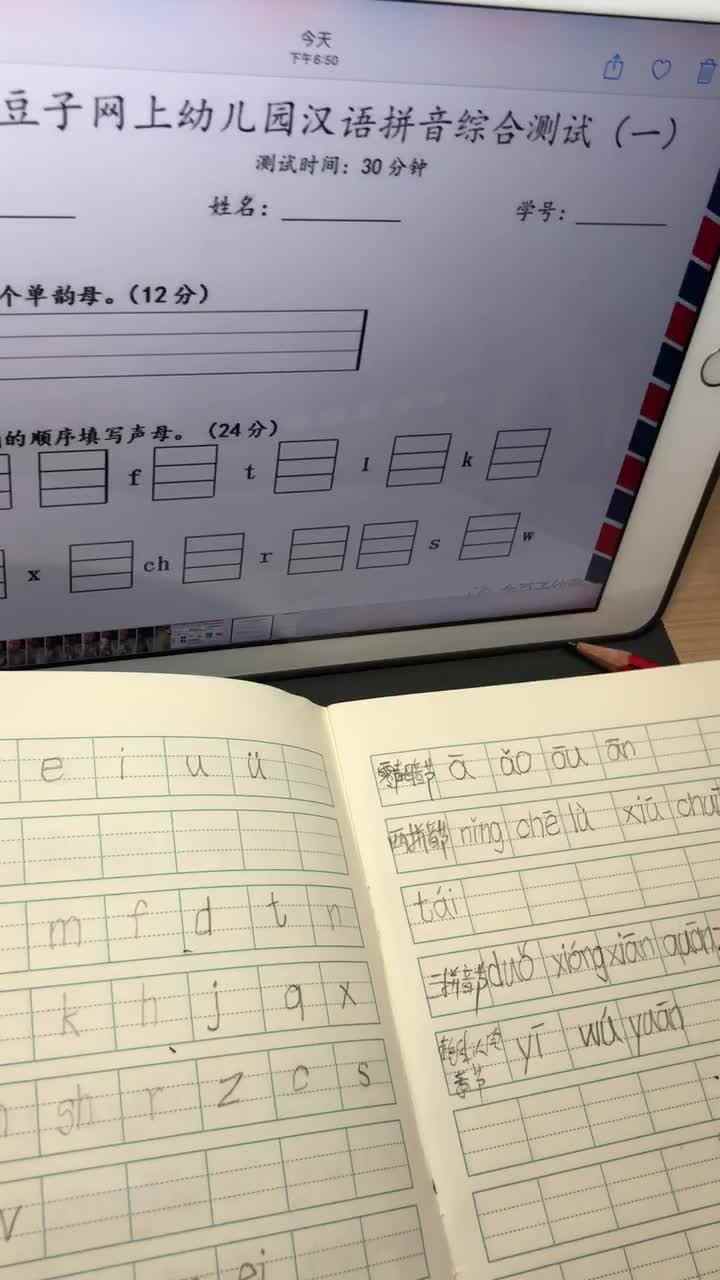 今天
下午6:50
豆子网上幼儿园汉语拼音综合测试（一）
测试时间：30分钟
姓名： 学号：
个单韵母。（12分）
的顺序填写声母。（24分）
f t l k
x ch r s w
e i u ü
m f d t n
k h j q x
sh r z c s
ei
ā ǎo ōu ān
两拼音节 níng chē là xiā chuī
tái
三拼音节 duǒ xióng xiān quān
整体认读音节 yī wú yuān